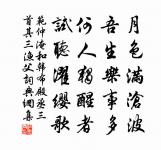 月色滿滄波
吾生樂事多
何人獨醒者
試聽濯纓歌
范仲淹和韓布殿丞三
首其三漁父詞典網集